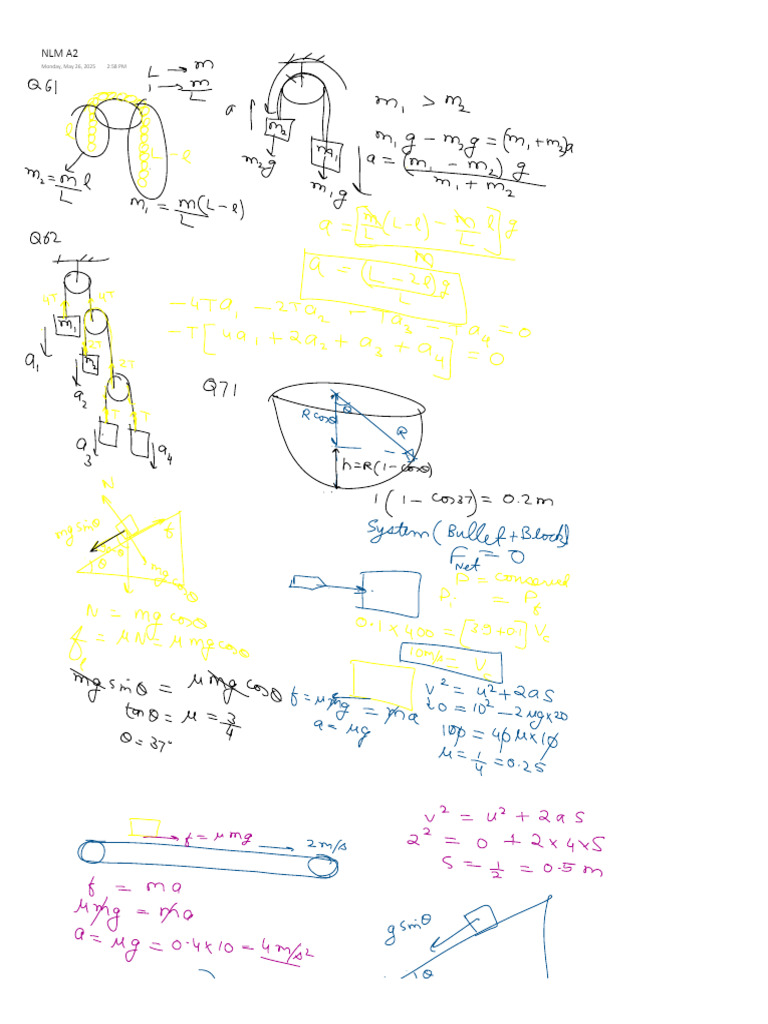 NLM A2
Monday, May 26, 2025 2:58 PM
Q61
L → m
1 → m/L
l
L-l
m₂ = m/L l
m₁ = m/L (L-l)
a
m₂
m₁
m₂g
m₁g
m₁ > m₂
m₁g - m₂g = (m₁+m₂)a
a = (m₁ - m₂) g / m₁ + m₂
a = [m/L (L-l) - m/L l] g / m
a = (L-2l)g / L
Q62
4T
4T
m₁
2T
m₂
2T
T
T
a₁
a₂
a₃
a₄
-4Ta₁ - 2Ta₂ - Ta₃ - Ta₄ = 0
-T[4a₁ + 2a₂ + a₃ + a₄] = 0
Q71
R cosθ
θ
R
h=R(1-cosθ)
1(1-cos37) = 0.2m
N
mg sinθ
f
θ
θ
mg cosθ
N = mg cosθ
f = μN = μmg cosθ
mg sinθ = μmg cosθ
tanθ = μ = 3/4
θ = 37°
System (Bullet + Block)
F_Net = 0
P = conserved
P_i = P_f
0.1×400 = [3.9+0.1] V_c
10m/s = V_c
f = μmg = ma
a = μg
v² = u² + 2as
20 = 10² - 2μg×20
100 = 40μ×10
μ = 1/4 = 0.25
f = μmg
2m/s
f = ma
μmg = ma
a = μg = 0.4×10 = 4m/s²
v² = u² + 2as
2² = 0 + 2×4×S
S = 1/2 = 0.5 m
g sinθ
θ